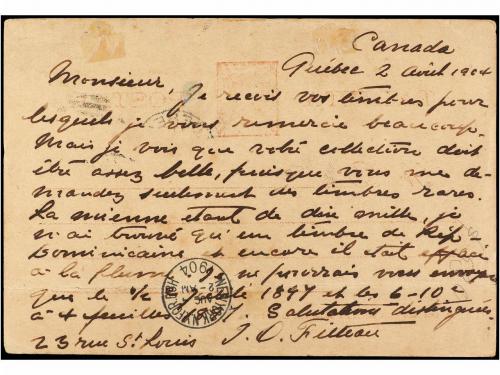 Canada
Québec 2 août 1904
Monsieur,
Je reçois vos timbres pour
lesquels je vous remercie beaucoup.
Mais je vois que votre collection doit
être assez belle, puisque vous me de-
mandez seulement des timbres rares.
La mienne étant de dix mille, je
n'ai trouvé qu'un timbre de Rép.
Dominicaine et encore il était effacé
à la plume ne pourrais vous envoyer
que le 1/2 de 1897 et les 6-10c
à 4 feuilles Salutations distinguées
23 rue St Louis J. O. Filteau
1904